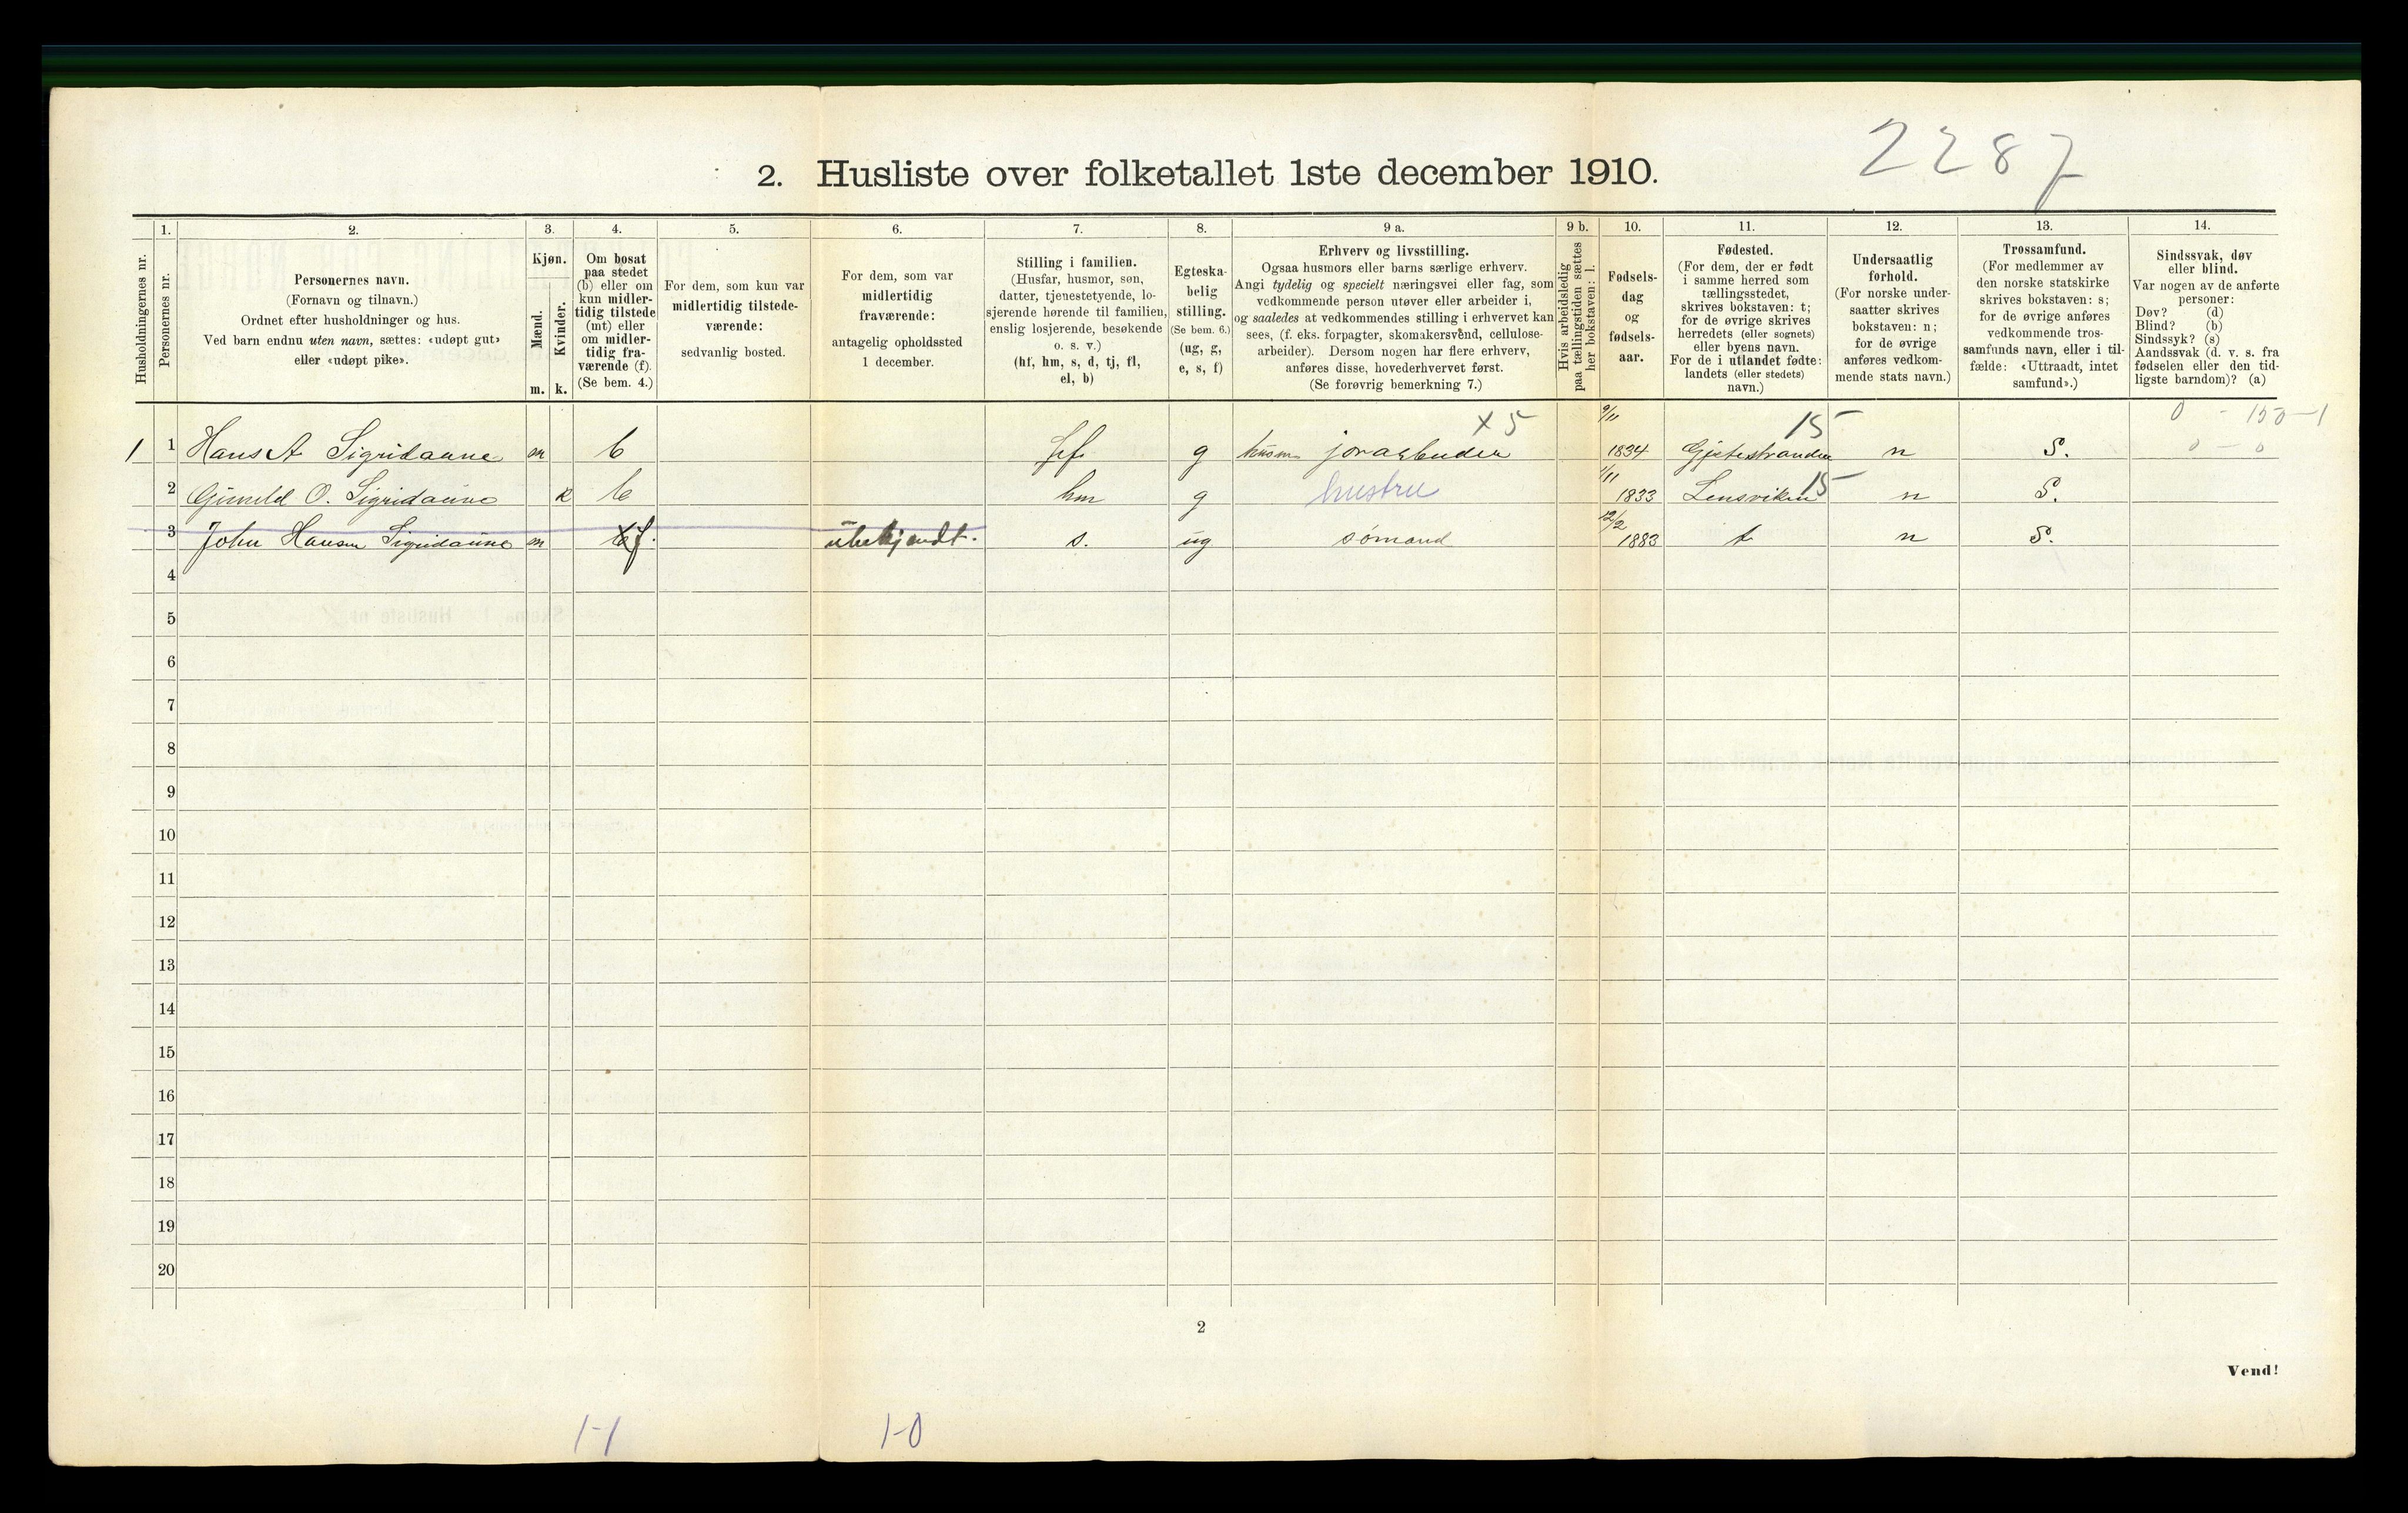 2287
2. Husliste over folketallet 1ste december 1910.
Husholdningernes nr.
1.
Personernes nr.
2.
Personernes navn.
(Fornavn og tilnavn.)
Ordnet efter husholdninger og hus.
Ved barn endnu uten navn, sættes: «udøpt gut»
eller «udøpt pike».
3.
Kjøn.
Mænd.
Kvinder.
m. k.
4.
Om bosat
paa stedet
(b) eller om
kun midler-
tidig tilstede
(mt) eller
om midler-
tidig fra-
værende (f).
(Se bem. 4.)
5.
For dem, som kun var
midlertidig tilstede-
værende:
sedvanlig bosted.
6.
For dem, som var
midlertidig
fraværende:
antagelig opholdssted
1 december.
7.
Stilling i familien.
(Husfar, husmor, søn,
datter, tjenestetyende, lo-
sjerende hørende til familien,
enslig losjerende, besøkende
o. s. v.)
(hf, hm, s, d, tj, fl,
el, b)
8.
Egteska-
belig
stilling.
(Se bem. 6.)
(ug, g,
e, s, f)
9 a.
Erhverv og livsstilling.
Ogsaa husmors eller barns særlige erhverv.
Angi tydelig og specielt næringsvei eller fag, som
vedkommende person utøver eller arbeider i,
og saaledes at vedkommendes stilling i erhvervet kan
sees, (f. eks. forpagter, skomakersvend, cellulose-
arbeider). Dersom nogen har flere erhverv,
anføres disse, hovederhvervet først.
(Se forøvrig bemerkning 7.)
9 b.
Hvis arbeidsledig
paa tællingstiden sættes
her bokstaven: l.
10.
Fødsels-
dag
og
fødsels-
aar.
11.
Fødested.
(For dem, der er født
i samme herred som
tællingsstedet,
skrives bokstaven: t;
for de øvrige skrives
herredets (eller sognets)
eller byens navn.
For de i utlandet fødte:
landets (eller stedets)
navn.)
12.
Undersaatlig
forhold.
(For norske under-
saatter skrives
bokstaven: n;
for de øvrige
anføres vedkom-
mende stats navn.)
13.
Trossamfund.
(For medlemmer av
den norske statskirke
skrives bokstaven: s;
for de øvrige anføres
vedkommende tros-
samfunds navn, eller i til-
fælde: «Uttraadt, intet
samfund».)
14.
Sindssvak, døv
eller blind.
Var nogen av de anførte
personer:
Døv? (d)
Blind? (b)
Sindssyk? (s)
Aandssvak (d. v. s. fra
fødselen eller den tid-
ligste barndom)? (a)
x 5 9/11 15 0 - 150-1
1 1 Hans A. Sigridaune m b hf. g husm. jorarbeider 1834 Gjeitestranden n S. 0 - 0
2 Gunild O. Sigridaune k b hm g hustru 1/11 1833 Lensviken 15 n S.
3 John Hansen Sigridaune m f. ubekjendt. s. ug sømand 12/2 1883 t n S.
4
5
6
7
8
9
10
11
12
13
14
15
16
17
18
19
20
2
Vend!
1-1 1-0